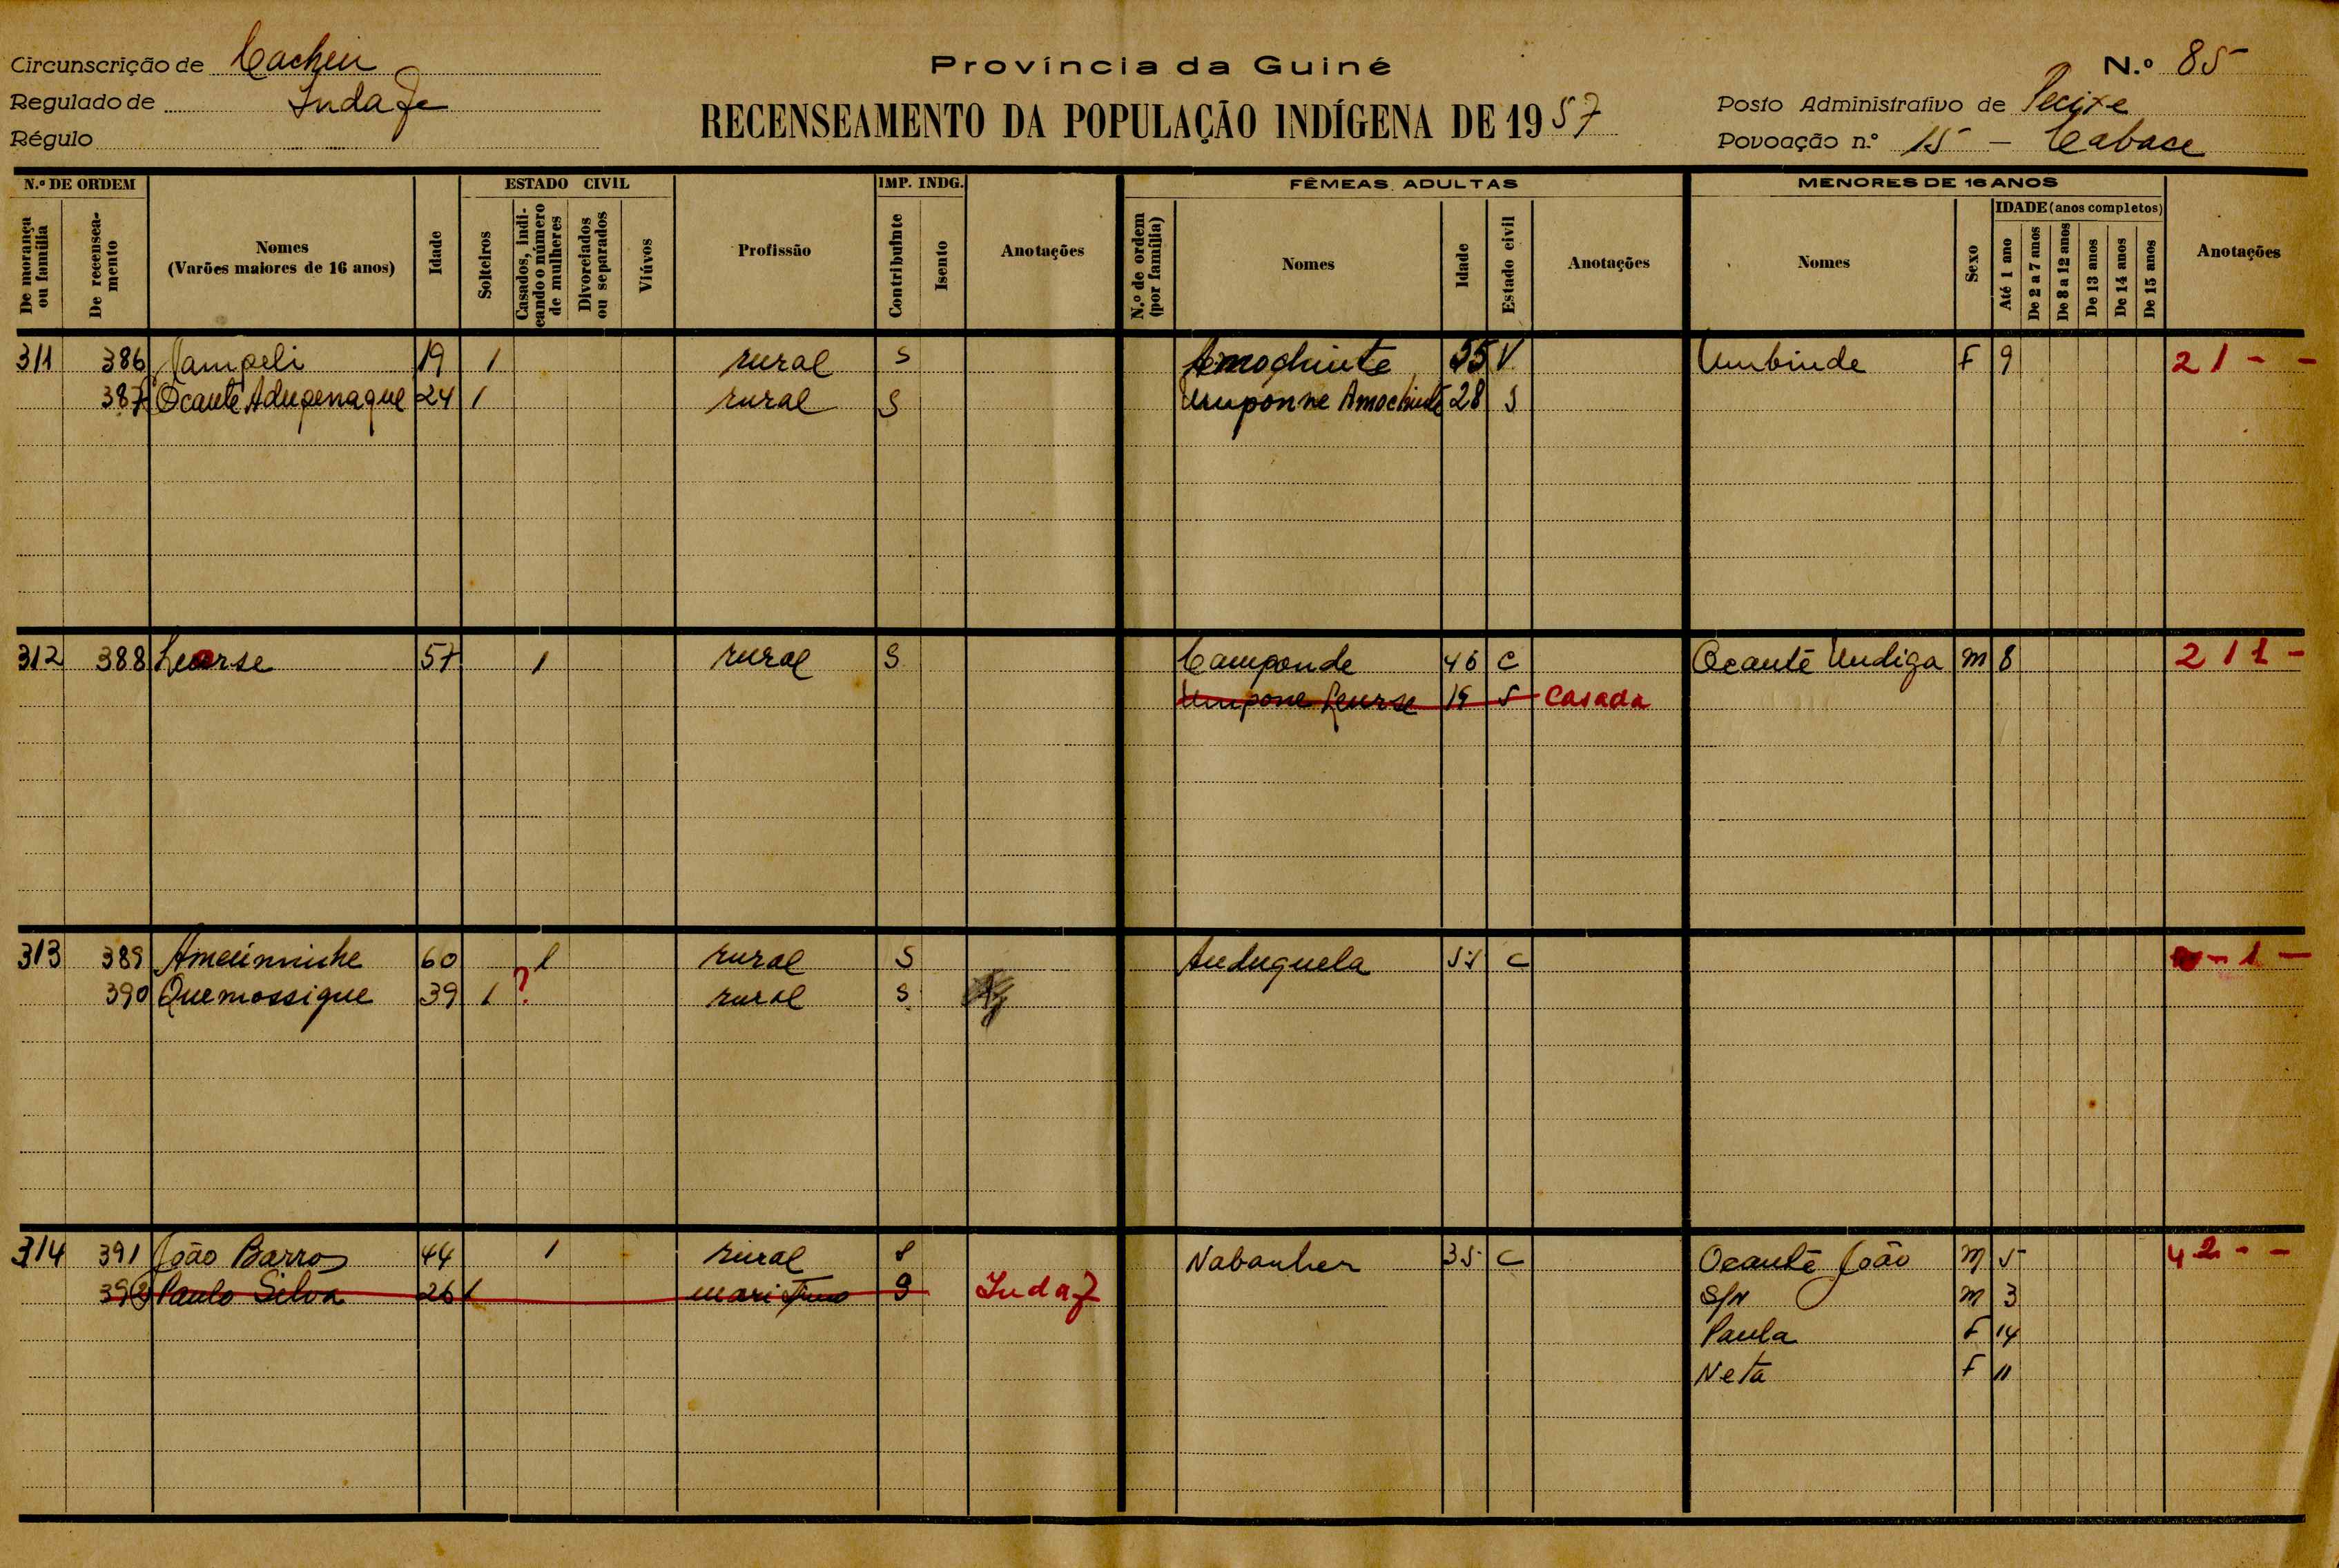 Circunscrição de Cacheu
Província da Guiné
N.º 85
Regulado de
RECENSEAMENTO DA POPULAÇÃO INDÍGENA DE 1957
Posto Administrativo de Pecixe
Régulo
Povoação n.º 15 –
N.º DE ORDEM
De morança ou família
De recenseamento
Nomes (Varões maiores de 16 anos)
Idade
ESTADO CIVIL
Solteiros
Casados, indicando o número de mulheres
Divorciados ou separados
Viúvos
Profissão
IMP. INDG.
Contribuinte
Isento
Anotações
FÊMEAS ADULTAS
N.º de ordem (por família)
Nomes
Idade
Estado civil
Anotações
MENORES DE 16 ANOS
Nomes
Sexo
IDADE (anos completos)
Até 1 ano
De 2 a 7 anos
De 8 a 12 anos
De 13 anos
De 14 anos
De 15 anos
Anotações
311 386 Nampeli 19 1 rural S Amochinte 55 V Umbinde F 9 2 1 - -
387 Ocante 24 1 rural S Umponne Amochinte 28 S
312 388 57 1 rural S Camponde 46 C Ocante Undiga M 8 2 1 1 -
Umpone 19 S Casada
313 389 60 1 rural S Anduquela C - 1 -
390 Quemossique 39 1 ? rural S
314 391 João Barros 44 1 rural S Nabanher 35 C Ocante João M 5 4 2 - -
392 Paulo Silva 26 1 S S/N M 3
Paula F 14
Neta F 11